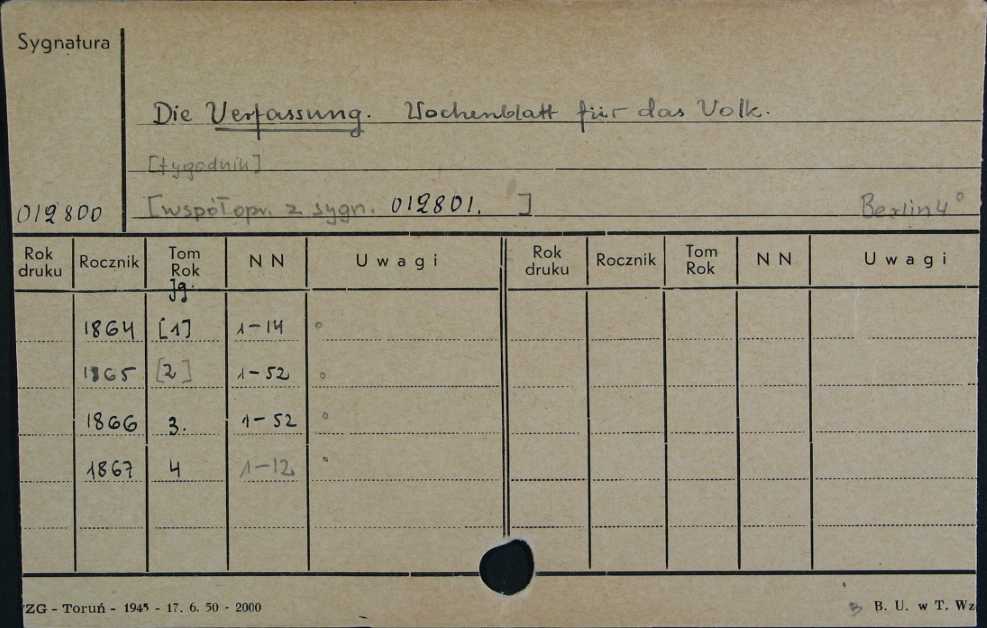 Sygnatura
Die Verfassung. Wochenblatt für das Volk.
[tygodnik]
012800 [współopr. z sygn. 012801. ] Berlin 4°
Rok druku Rocznik Tom Rok NN Uwagi Rok druku Rocznik Tom Rok NN Uwagi
Jg.
1864 [1] 1-14 °
1865 [2] 1-52 °
1866 3. 1-52 °
1867 4 1-12 °
ZG - Toruń - 1945 - 17. 6. 50 - 2000 B. U. w T. Wz